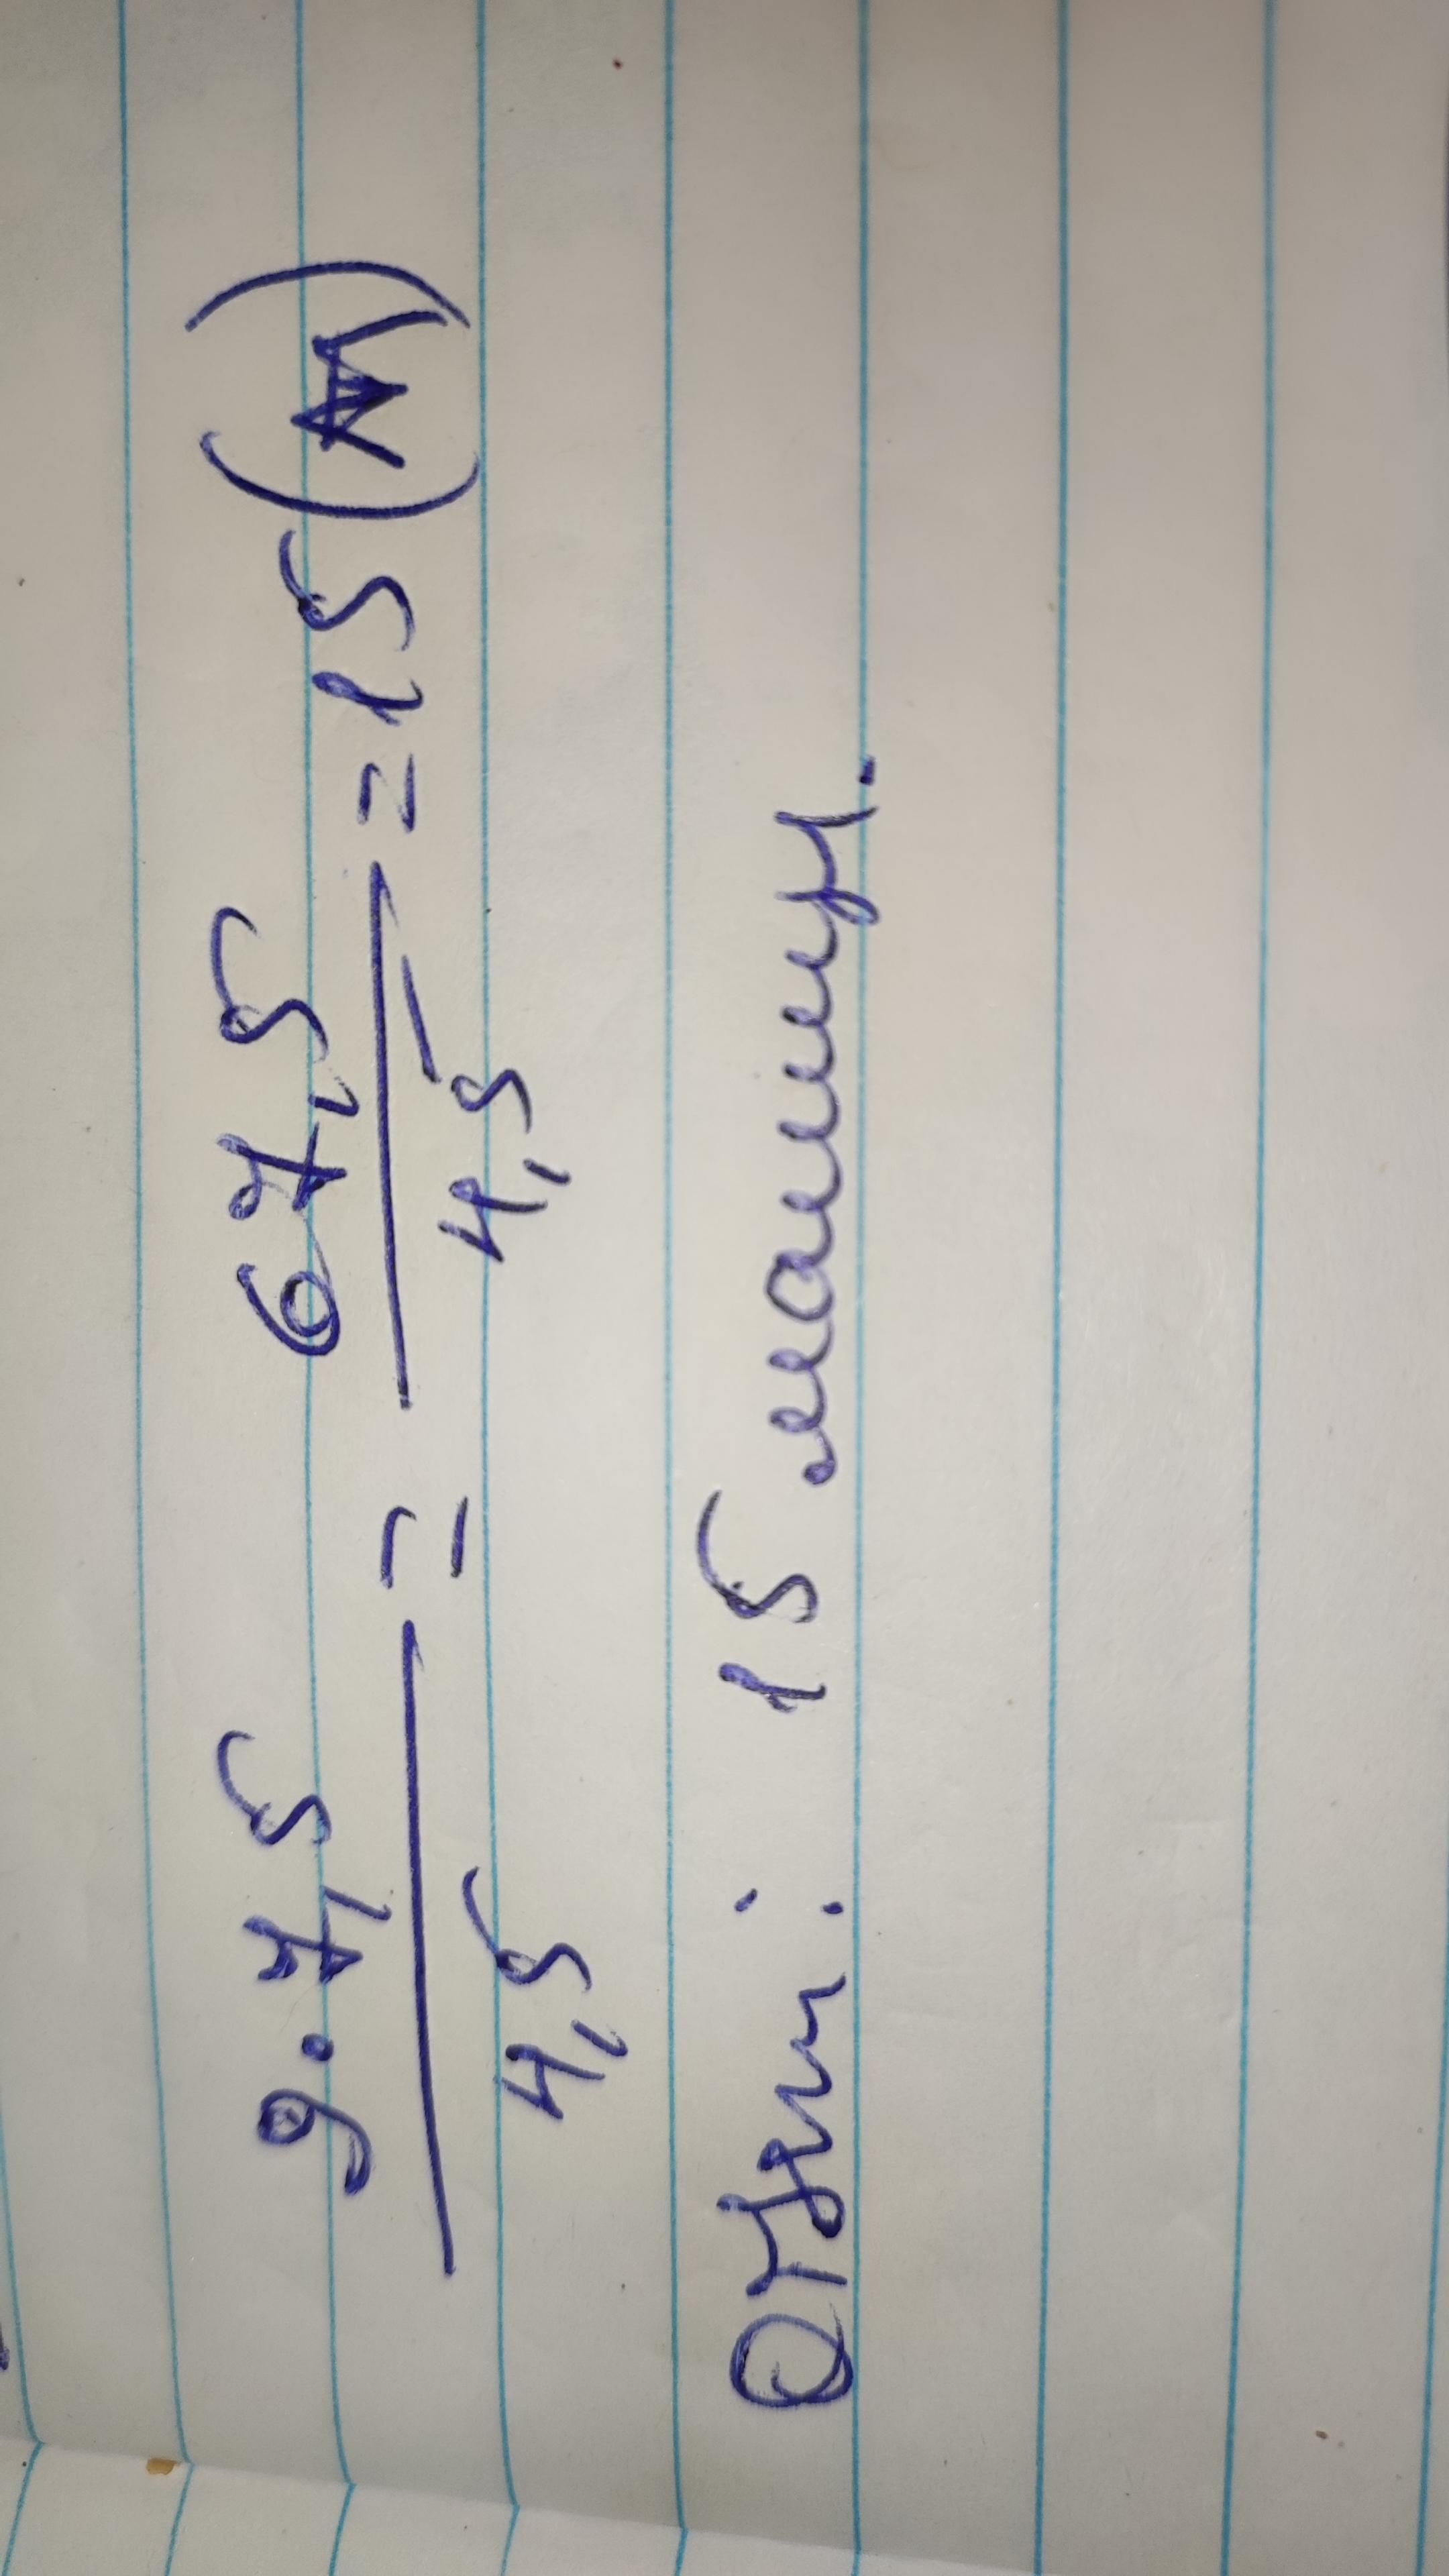 9·7,5/4,5 = 67,5/4,5 = 15 (м)
Ответ: 15 машин.